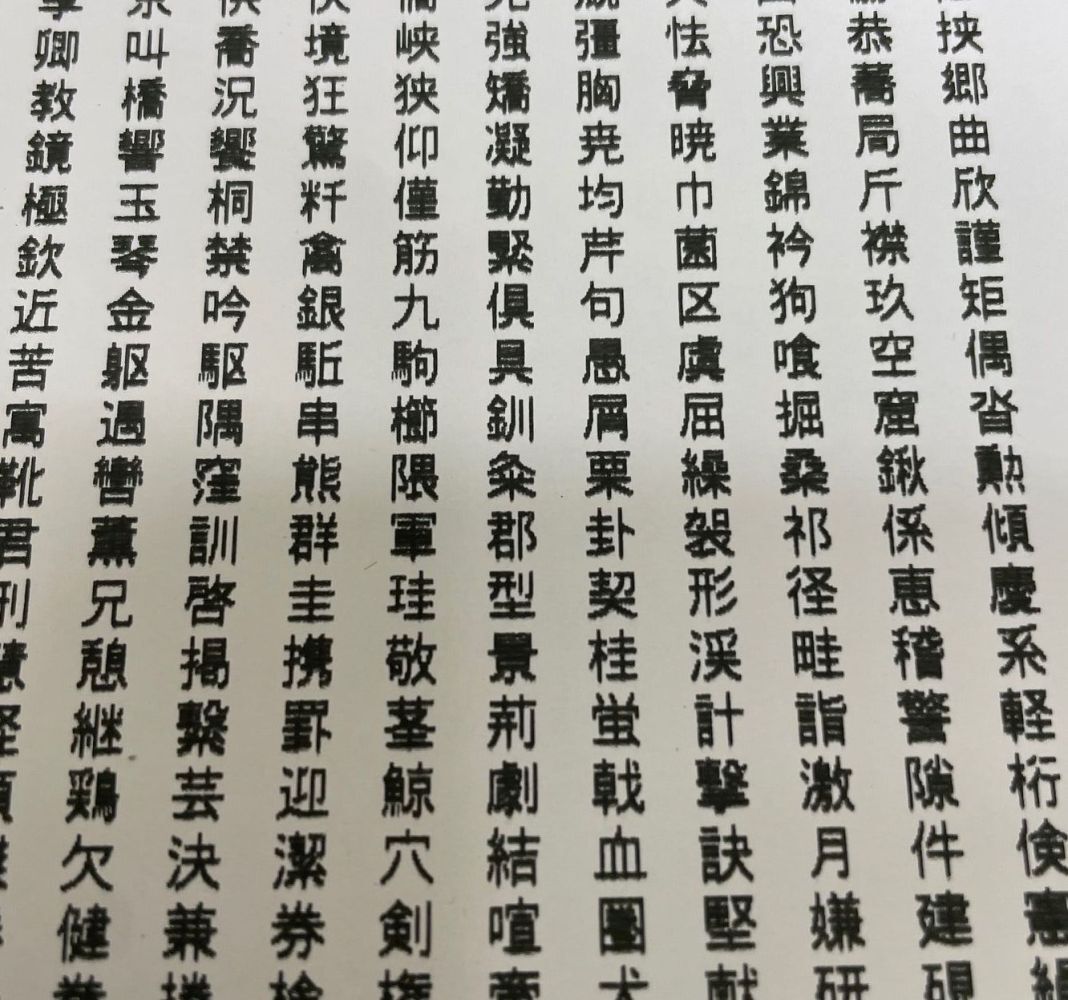 卿叫喬境峡強彊怯恐恭挟
教橋況狂狭矯胸脅興蕎郷
鏡響饗驚仰凝尭暁業局曲
極玉桐粁僅勤均巾錦斤欣
欽琴禁禽筋緊芹菌衿襟謹
近金吟銀九倶句区狗玖矩
苦躯駆駈駒具愚虞喰空偶
寓遇隅串櫛釧屑屈掘窟沓
靴轡窪熊隈粂栗繰桑鍬勲
君薫訓群軍郡卦袈祁係傾
刑兄啓圭珪型契形径恵慶
慧憩掲携敬景桂渓畦稽系
経継繋罫茎荊蛍計詣警軽
鶏芸迎鯨劇戟撃激隙桁
欠決潔穴結血訣月件倹
健兼券剣喧圏堅嫌建憲